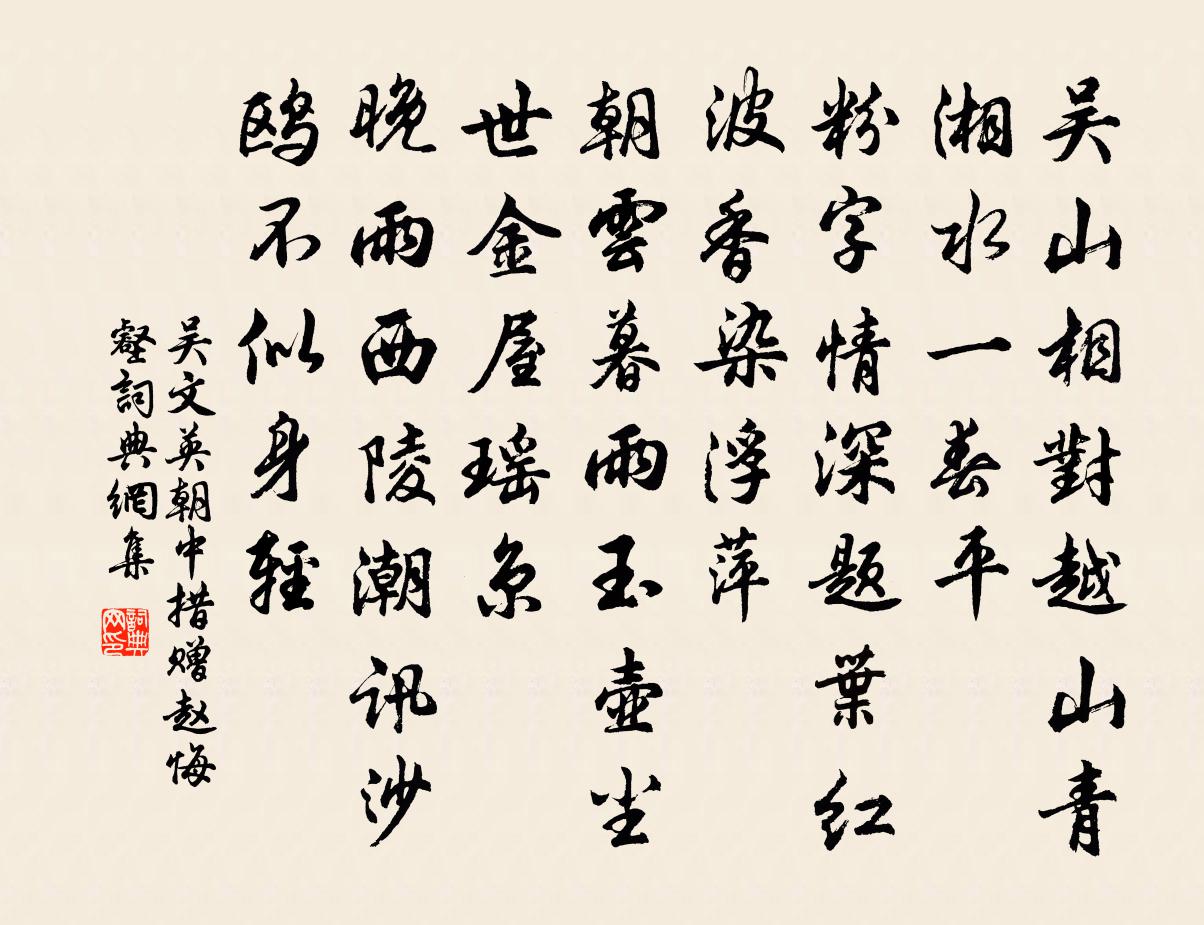 吴山相對越山青
湘水一春平
粉字情深题葉红
波香染浮萍
朝雲暮雨玉壷尘
世金屋瑶京
晚雨西陵潮讯沙
鸥不似身轻
吴文英朝中措赠赵悔
壑詞典網集
詞典网印